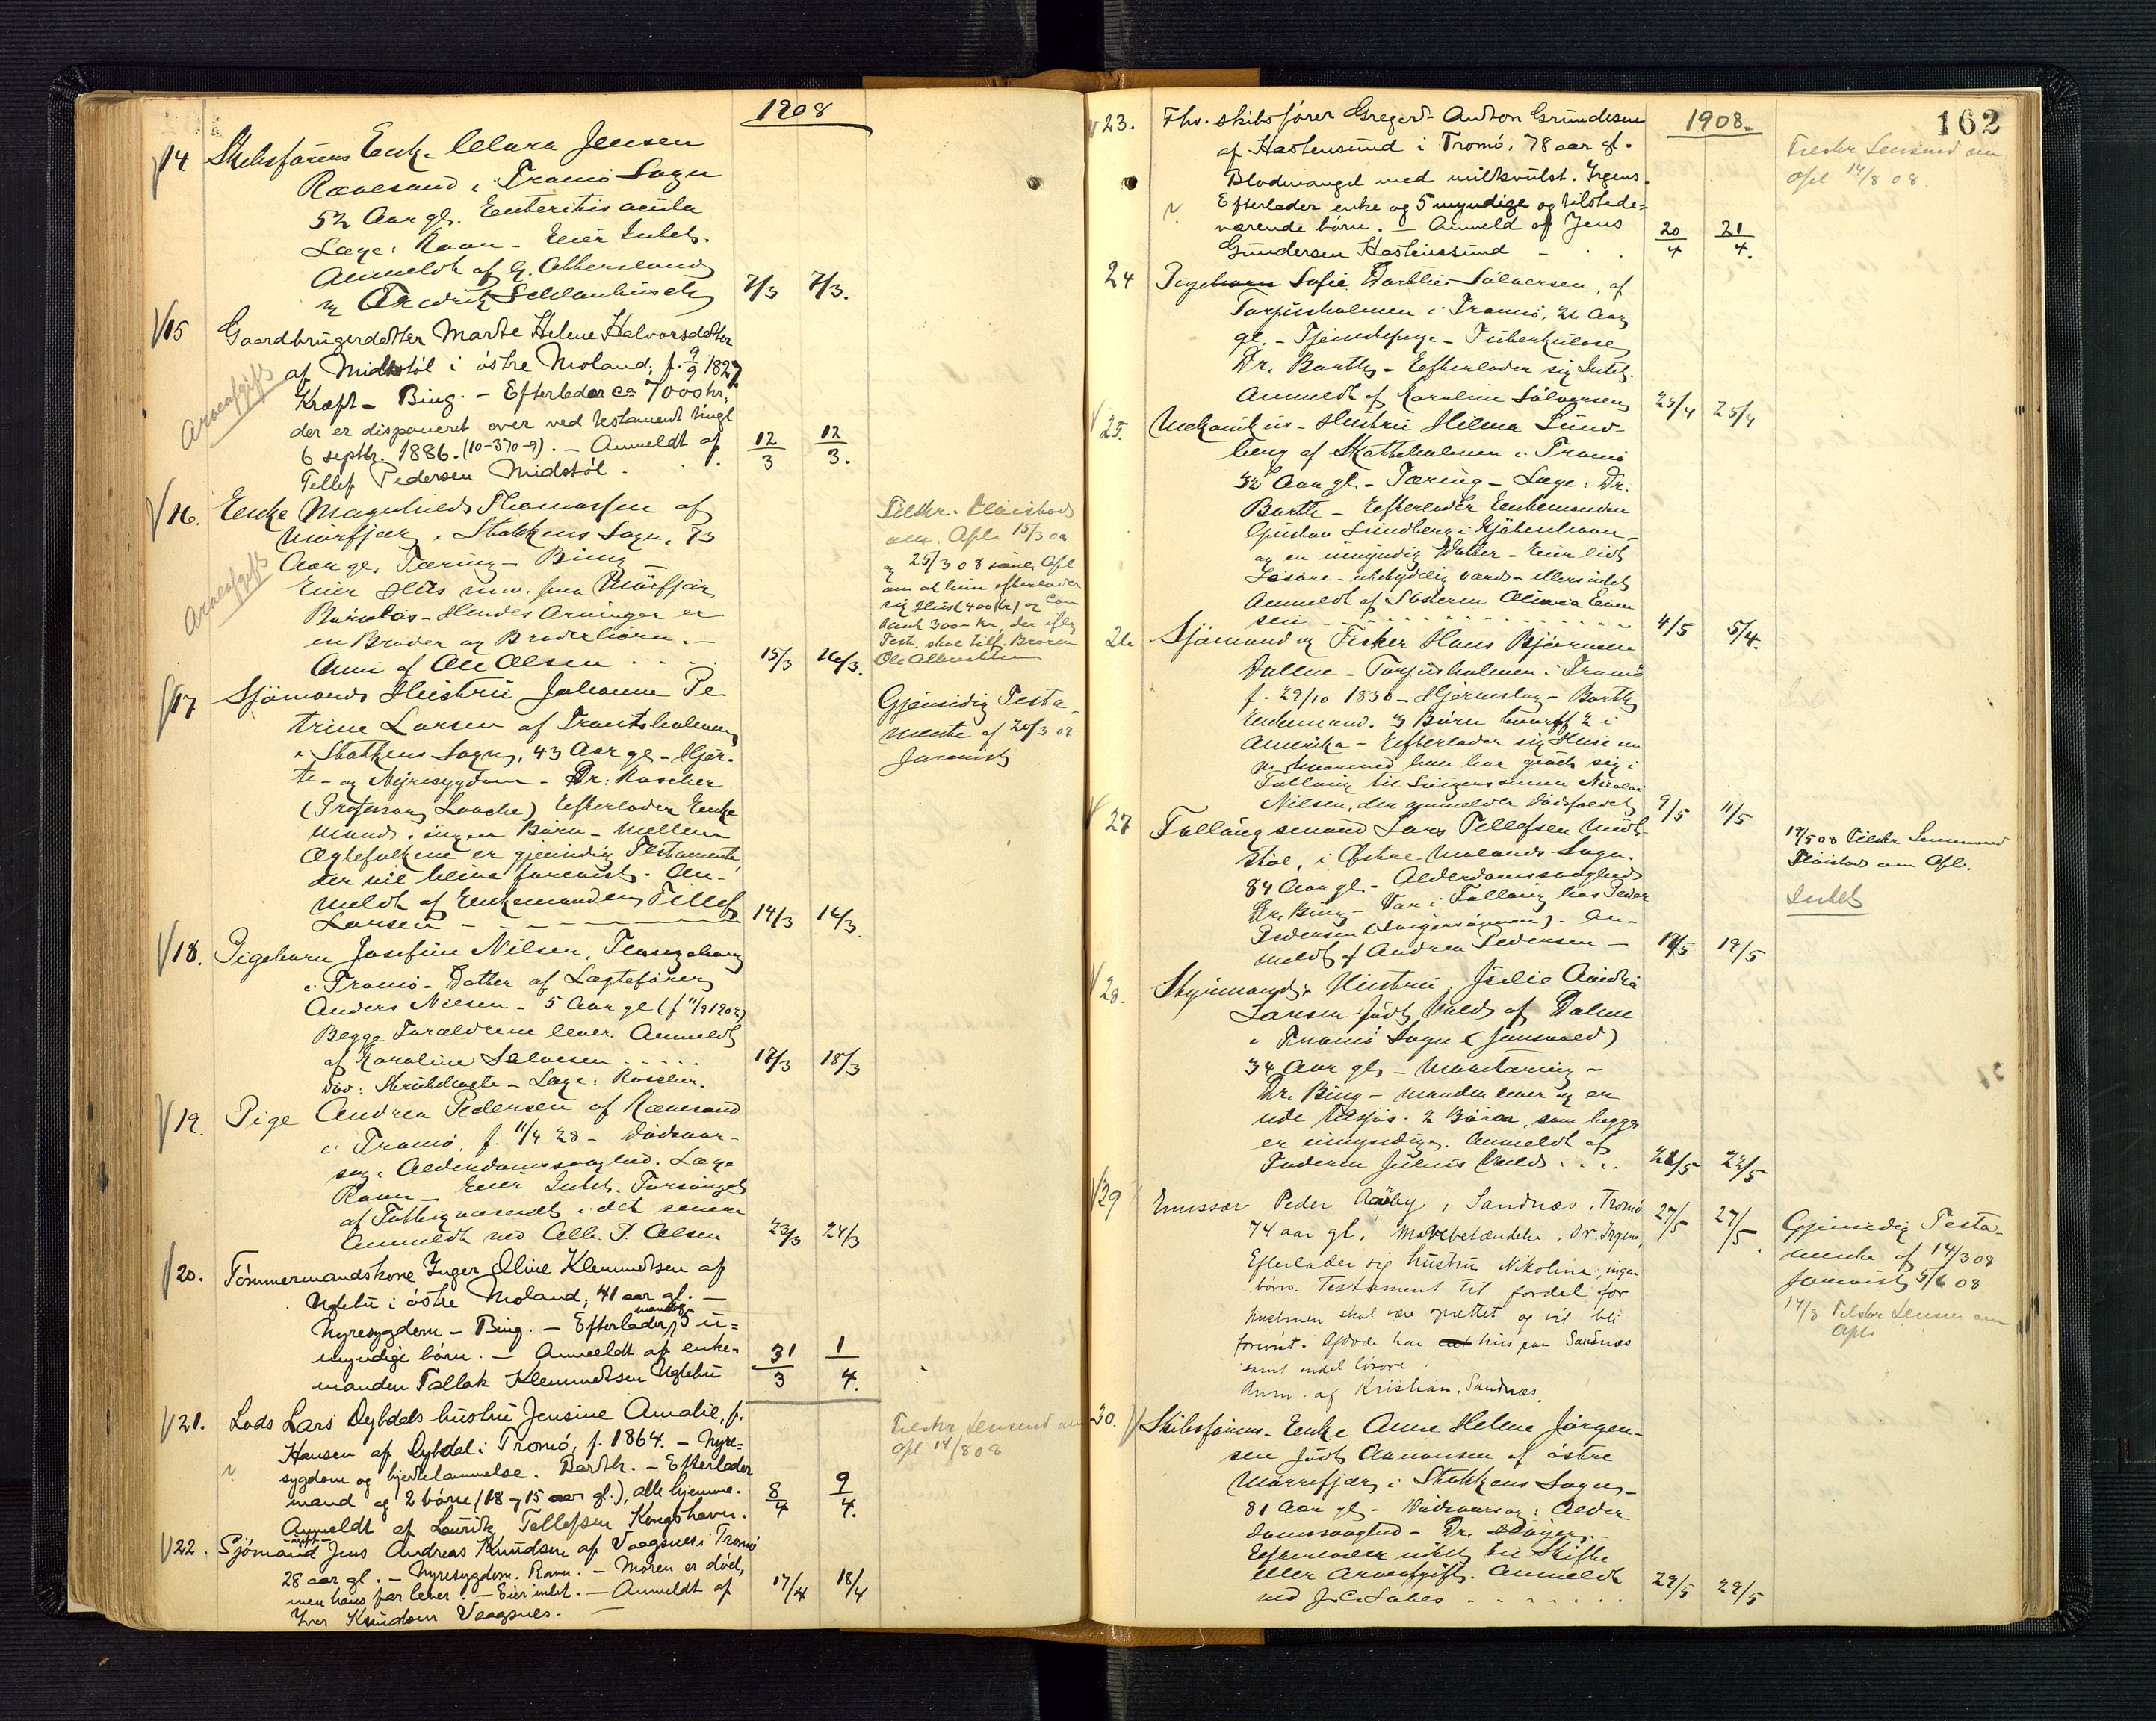 1908
14 Skibsførers Enke Clara Jensen
Rævesand i Tromø Sogn
52 Aar gl. Enteritis acuta
Læge: Ravn - Eier Intet.
Anmeldt af G. Albersland
7/3 7/3.
15 Gaardbrugerdatter Marte Helene Halvorsdatter
af Midtstøl i østre Moland, f. 9/9 1827
Kræft - Bing. - Efterlader ca 7000 kr,
der er disponeret over ved testament tingl
6 septbr. 1886. (10-370-9). - Anmeldt af
Tellef Pedersen Midtstøl.
12/3 12/3.
Arveafgift
16. Enke Magnhild Thomassen af
Mørfjær, Stokkens Sogn, 73
Aar gl. Tæring - Bing -
Eier Hus m.v. paa Mørfjær
Barnløs - Hendes Arvinger er
en Broder og Broderbørn. -
Anm. af Ole Olsen
15/3 16/3.
Arveafgift
Tilskr. Fløistad
om Opl. 15/3 08
om at hun efterlader
Ole Albertsen
17 Sjømands Hustru Johanne Pe
trine Larsen af
i Stokkens Sogn, 43 Aar gl - Hjer-
te- og Nyresygdom - Dr: Roscher
(Professor Laache) Efterlader Enke
mand, ingen Børn - Mellem
Ægtefolkene er gjensidig Testamente,
der vil blive forevist. An-
meldt af Enkemanden Tellef
Larsen
14/3 16/3.
Gjensidig Testa-
mente af 20/3 07
forevist
18. Pigebarn Josefine Nilsen,
i Tromø - Datter af Lægtefører
Anders Nielsen - 5 Aar gl (f 11/9 1902)
Begge Forældrene lever. Anmeldt
af Karoline Salvesen
Død: Strubehoste - Læge: Roscher.
17/3 18/3
19. Pige Andrea Pedersen af Rævesand
i Tromø, f. 11/4 28 - Dødsaar-
sag: Alderdomssvaghed. Læge
Ravn - Eier Intet. Forsørget
af Fattigvæsenet i det senere
Anmeldt ved Alb. P. Olsen
23/3 24/3
20. Tømmermandskone Inger Oline Klemmetsen af
Uglebu i østre Moland, 41 aar gl. -
Nyresygdom - Bing. - Efterlader mand og 5 u-
myndige børn. - Anmeldt af enke-
manden Tallak Klemmetsen Uglebu
31/3 1/4.
21. Lods Lars Dybdals hustru Jensine Amalie, f.
Hansen af Dybdal i Tromø, f. 1864. - Nyre-
sygdom og hjertelammelse. Barth. - Efterlader
mand og 2 børn (18 og 15 aar gl.), alle hjemme.
Anmeldt af Lauritz Tellefsen Kongshavn.
8/4 9/4.
Tilskr Lensmd om
Opl 14/8 08
22. Sjømand ugift Jens Andreas Knudsen af Vaagsnes i Tromø
28 aar gl. - Nyresygdom. Ravn. - Moren er død,
men hans far lever. - Eier intet. - Anmeldt af
Iver Knudsen Vaagsnes.
17/4 18/4
1908. 162
23. Fhv. skibsfører Gregert Anton Gundersen
af Hastensund i Tromø, 78 aar gl.
Blodmangel med miltsvulst. Irgens.
Efterlader enke og 5 myndige og tilstede-
værende børn. - Anmeld af Jens
Gundersen Hastensund
20/4 21/4.
Tilskr Lensmd om
Opl 14/8 08.
24 Pige Sofie Dorthie Salvesen, af
Torjusholmen i Tromø, 26 Aar
gl. - Tjenestepige - Tuberkulose
Dr. Barth - Efterlader sig Intet.
Anmeldt af Karoline Salvesen
25/4 25/4
25. Mekanikus-Hustru Helena Lund-
berg af Skottholmen i Tromø
32 Aar gl - Tæring - Læge: Dr.
Barth - Efterlader Enkemanden
Gustav Lundberg i Kjøbenhavn
og en umyndig Datter - Eier lidt
Løsøre - ubetydelig værd - ellers intet
Anmeldt af Søsteren Olivia Even
sen
4/5 5/4.
26 Sjømand og Fisker Hans Bjørnsen
Dalene - Torjusholmen i Tromø
f. 29/10 1830 - Hjerneslag - Barth
Enkemand. 3 Børn hvoraf 2 i
Amerika - Efterlader sig Huse m
m hvormed han har givet sig i
Follaug til Svigersønnen Nicolai
Nilsen, der anmelder Dødsfaldet
9/5 11/5
27 Follaugsmand Lars Tellefsen Midt-
støl, i Østre Molands Sogn.
84 Aar gl. - Alderdomssvaghed
Dr. Bing - Var i Follaug hos Peder
Pedersen (Svigersønnen) - An-
meldt af Andrea Pedersen -
19/5 19/5
19/5 08 Tilskr Lensmand
Fløistad om Opl.
Intet
28. Styrmands Hustru Julie Andrea
Larsen født Vold af Dalene
i Tromø Sogn
34 Aar gl -
Dr. Bing - Manden lever og er
ude tilsjøs. 2 Børn, som begge
er umyndige. Anmeldt af
Faderen Julius Vold
22/5 22/5
29 Emissær Peder Aaby, Sandnæs, Tromø
74 aar gl. Mavebetændelse, Dr. Irgens,
Efterlader sig hustru Nikoline, ingen
børn. Testament til fordel for
hustruen skal være oprettet og vil bli
forevist. Afdøde har hus paa Sandnæs
samt endel løsøre.
Anm. af Kristian Sandnæs.
27/5 27/5.
Gjensidig Testa-
mente af 14/3 08
forevist 5/6 08
14/8 Tilskr Lensm om
Opl.
30. Skibsførers-Enke Anne Helene Jørgen-
sen født Aanonsen af østre
Mørrefjær i Stokkens Sogn -
81 Aar gl - Dødsaarsag: Alder-
domssvaghed - Dr.
Efterlader intet til Skifte
eller Arveafgift. Anmeldt
ved J. C. Labes
29/5 29/5